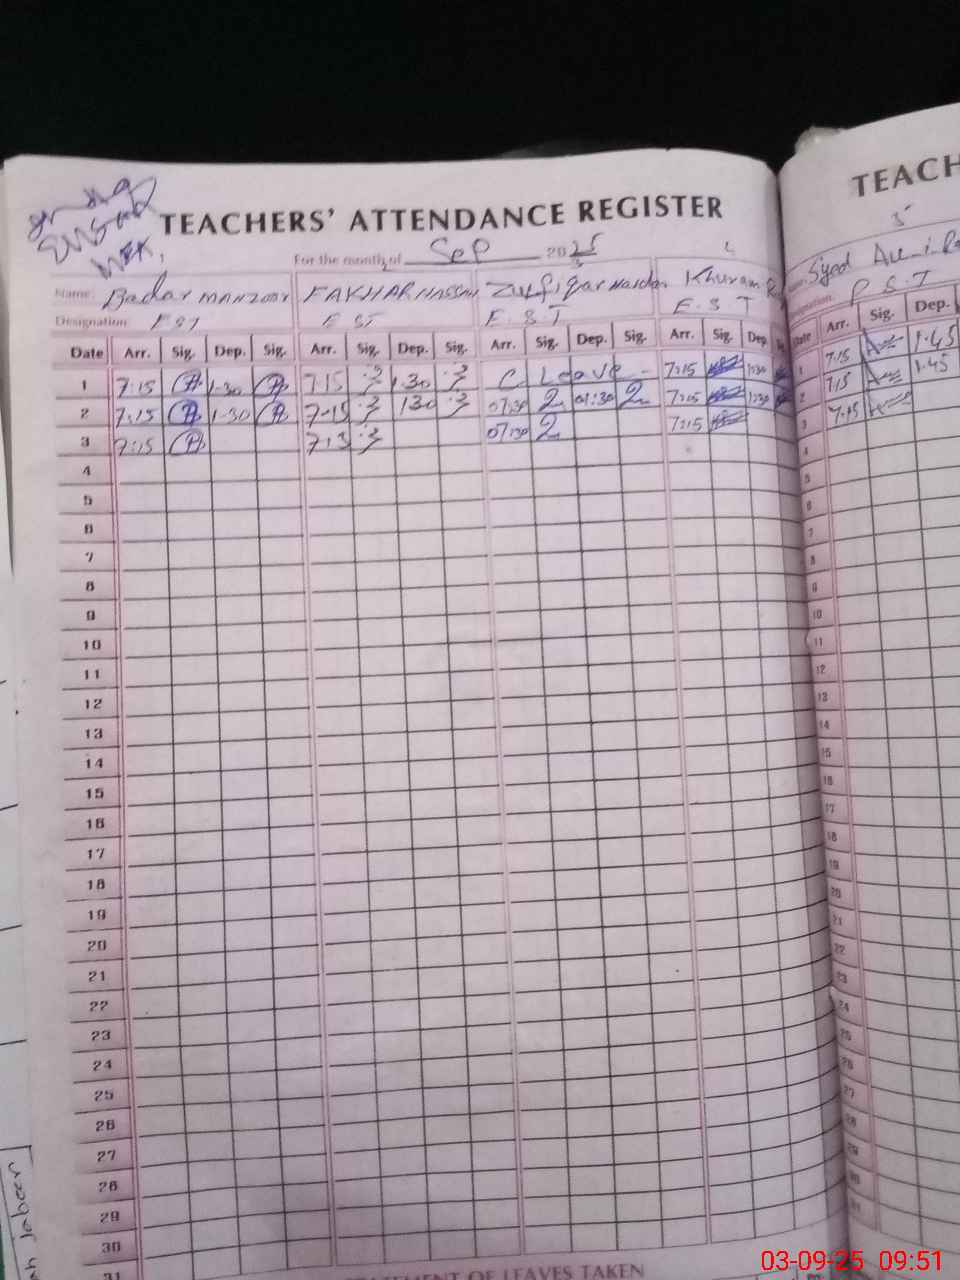 TEACHERS' ATTENDANCE REGISTER
For the month of Sep 2025
Name: Badar MANZOOR FAKHAR HASSAN Zulfiqar Haider Khuram
Designation EST EST E.S.T E.S.T
Date Arr. Sig. Dep. Sig. Arr. Sig. Dep. Sig. Arr. Sig. Dep. Sig. Arr. Sig. Dep.
1 7:15 1-30 7:15 1-30 C Leave - 7:15 1:30
2 7:15 1-30 7-15 130 07:30 01:30 7:15 1:30
3 7:15 7:15 07:30 7:15
4
5
6
7
8
9
10
11
12
13
14
15
16
17
18
19
20
21
22
23
24
25
26
27
28
29
30
31
STATEMENT OF LEAVES TAKEN
TEACH
5
Syed
P.S.T
Date Arr. Sig. Dep.
1 7:15 1:45
2 7:15 1.45
3 7:15
4
5
6
7
8
9
10
11
12
13
14
15
16
17
18
19
20
21
22
23
24
25
26
27
28
29
30
31
Jabeen
03-09-25 09:51